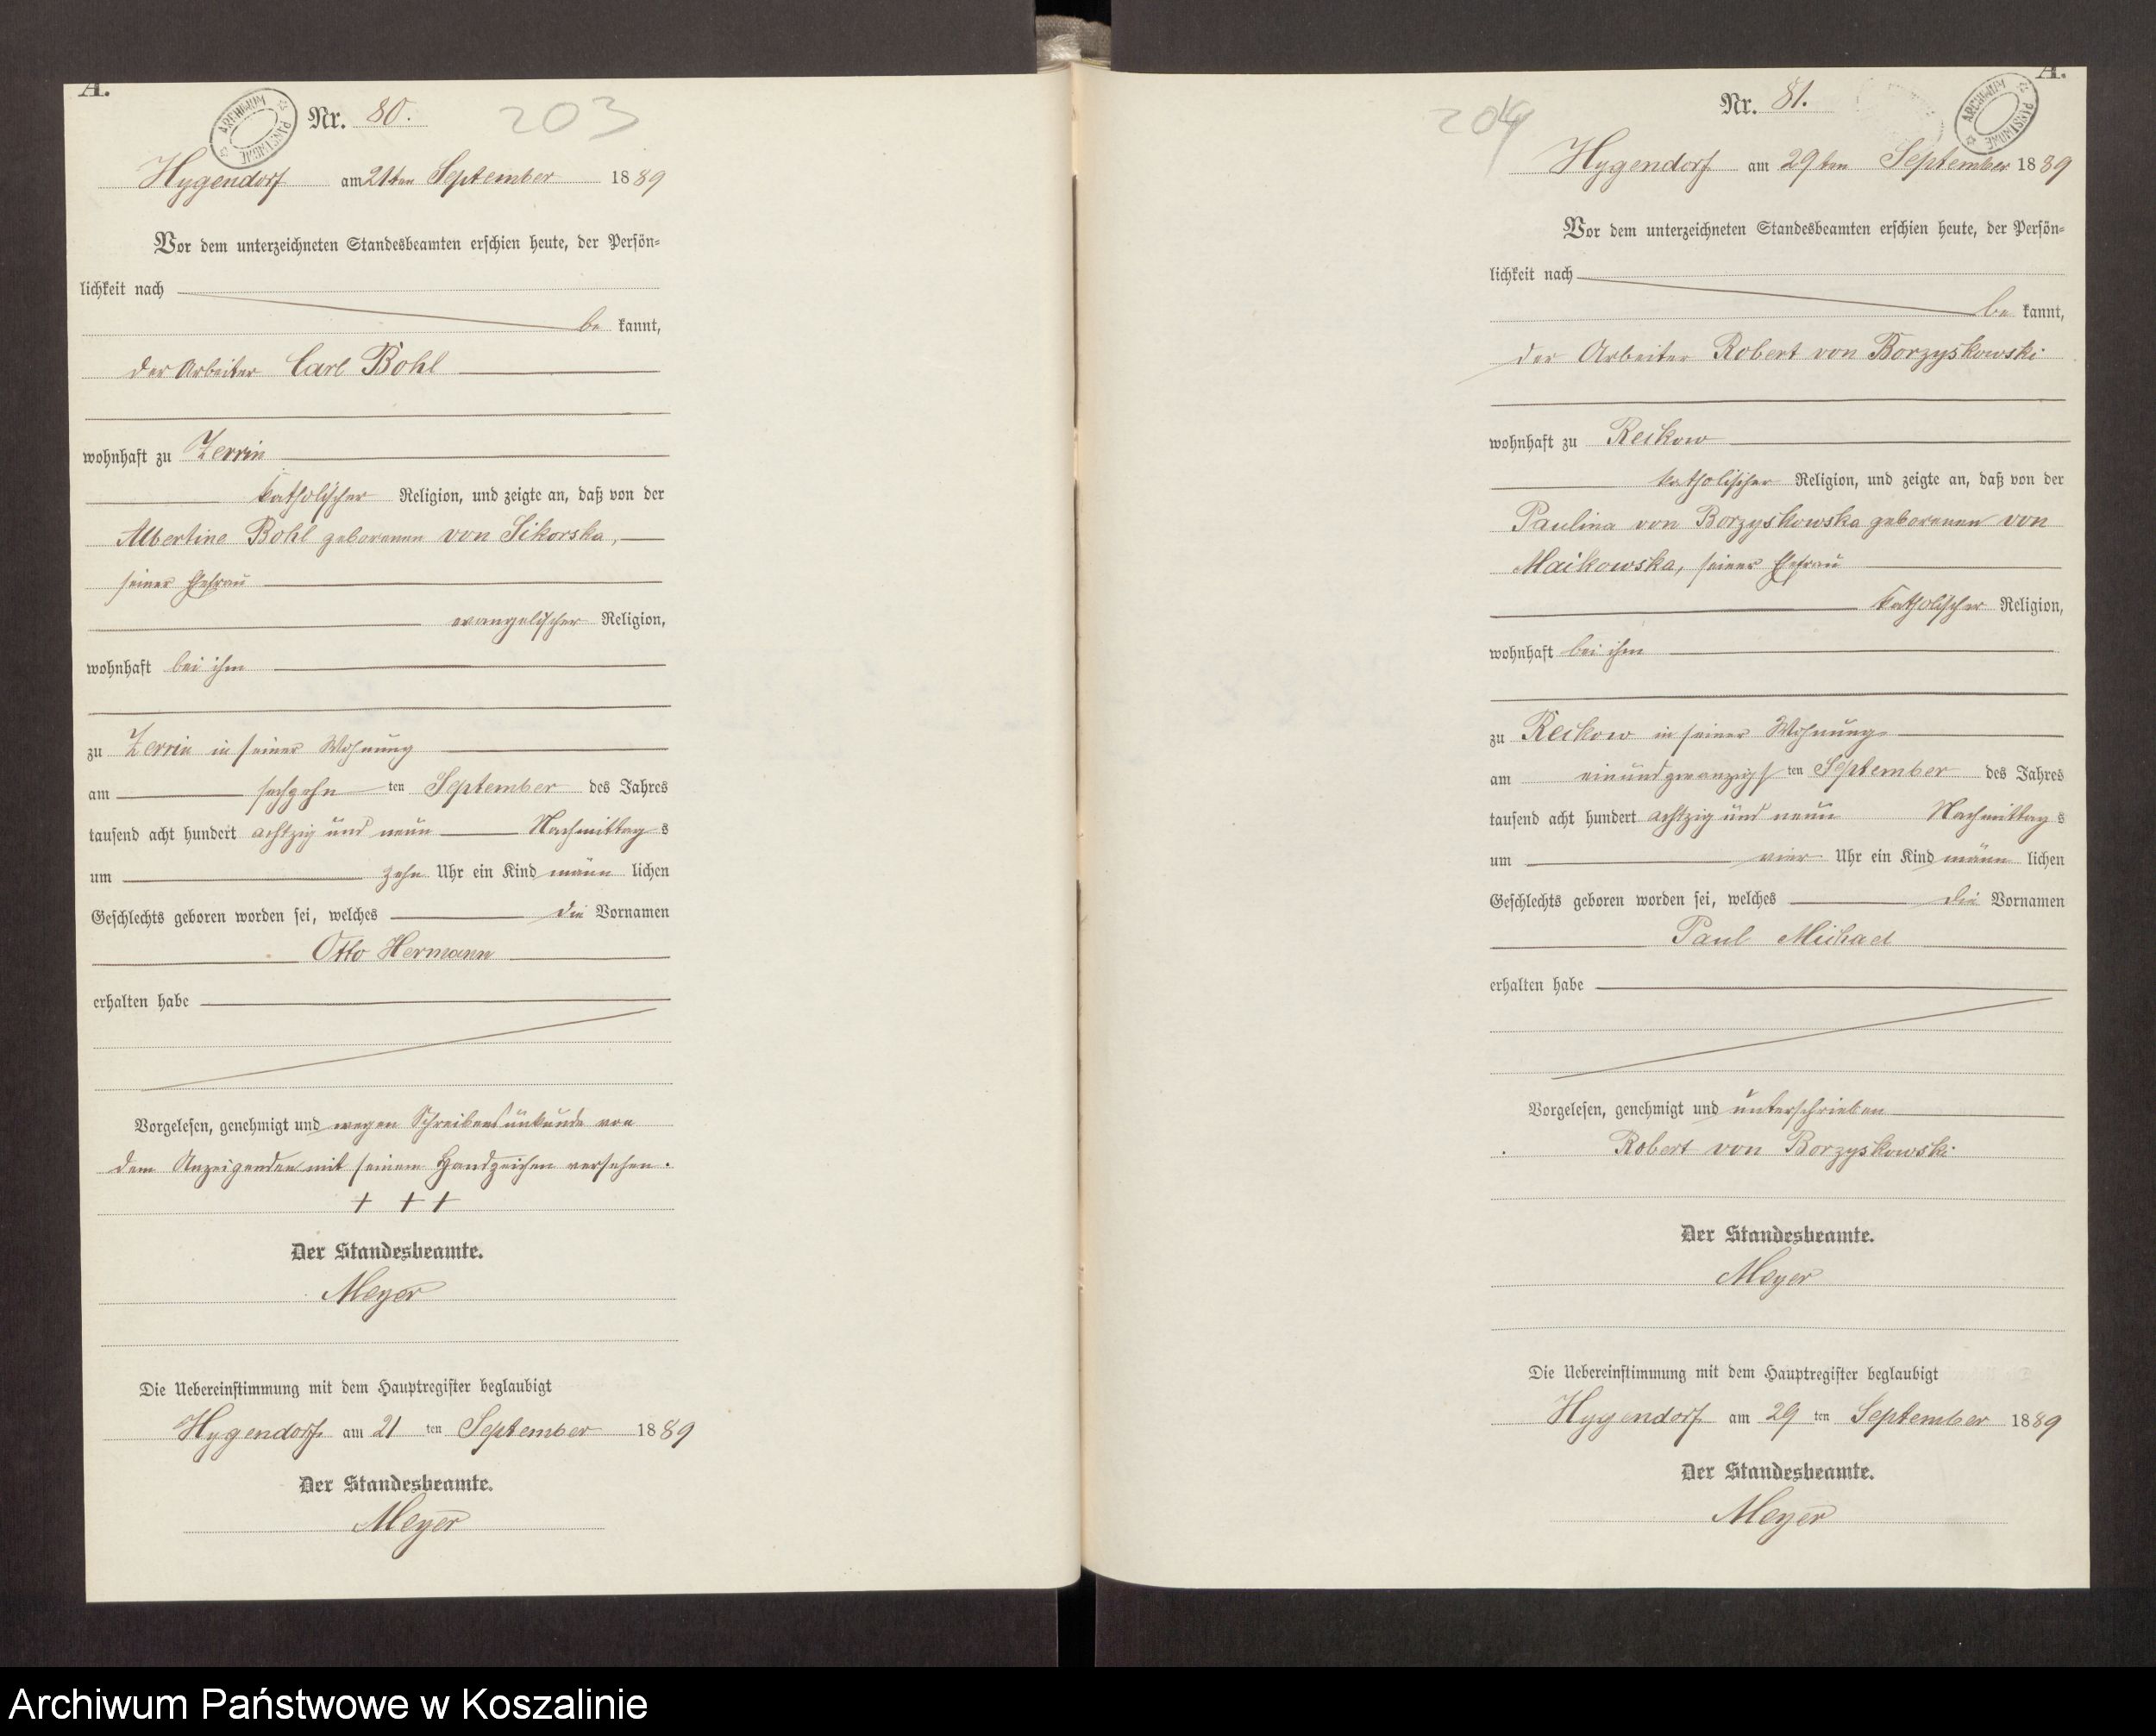 A.
ARCHIWUM PAŃSTWOWE
Nr. 80.
203
Hygendorf am 21ten September 1889
Vor dem unterzeichneten Standesbeamten erschien heute, der Persön-
lichkeit nach
be kannt,
der Arbeiter Carl Bohl
wohnhaft zu Zerrin
katholischer Religion, und zeigte an, daß von der
Albertine Bohl geborenen von Sikorska,
seiner Ehefrau
evangelischer Religion,
wohnhaft bei ihm
zu Zerrin in seiner Wohnung
am sechzehn ten September des Jahres
tausend acht hundert achtzig und neun Nachmittag s
um zehn Uhr ein Kind männ lichen
Geschlechts geboren worden sei, welches die Vornamen
Otto Hermann
erhalten habe
Vorgelesen, genehmigt und wegen Schreibensunkunde von
dem Anzeigenden mit seinem Handzeichen versehen.
+ + +
Der Standesbeamte.
Meyer
Die Uebereinstimmung mit dem Hauptregister beglaubigt
Hygendorf am 21 ten September 1889
Der Standesbeamte.
Meyer
A.
ARCHIWUM PAŃSTWOWE
Nr. 81.
204
Hygendorf am 29ten September 1889
Vor dem unterzeichneten Standesbeamten erschien heute, der Persön-
lichkeit nach
be kannt,
der Arbeiter Robert von Borzyskowski
wohnhaft zu Reckow
katholischer Religion, und zeigte an, daß von der
Paulina von Borzyskowska geborenen von
Maikowska, seiner Ehefrau
katholischer Religion,
wohnhaft bei ihm
zu Reckow in seiner Wohnung
am einundzwanzigs ten September des Jahres
tausend acht hundert achtzig und neun Nachmittag s
um vier Uhr ein Kind männ lichen
Geschlechts geboren worden sei, welches die Vornamen
Paul Michael
erhalten habe
Vorgelesen, genehmigt und unterschrieben
Robert von Borzyskowski
Der Standesbeamte.
Meyer
Die Uebereinstimmung mit dem Hauptregister beglaubigt
Hygendorf am 29 ten September 1889
Der Standesbeamte.
Meyer
Archiwum Państwowe w Koszalinie